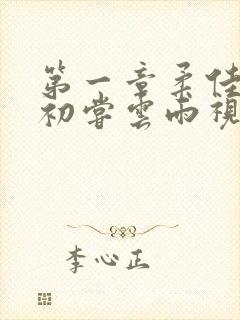 第一章柔佳
初尝雲雨視
李心正